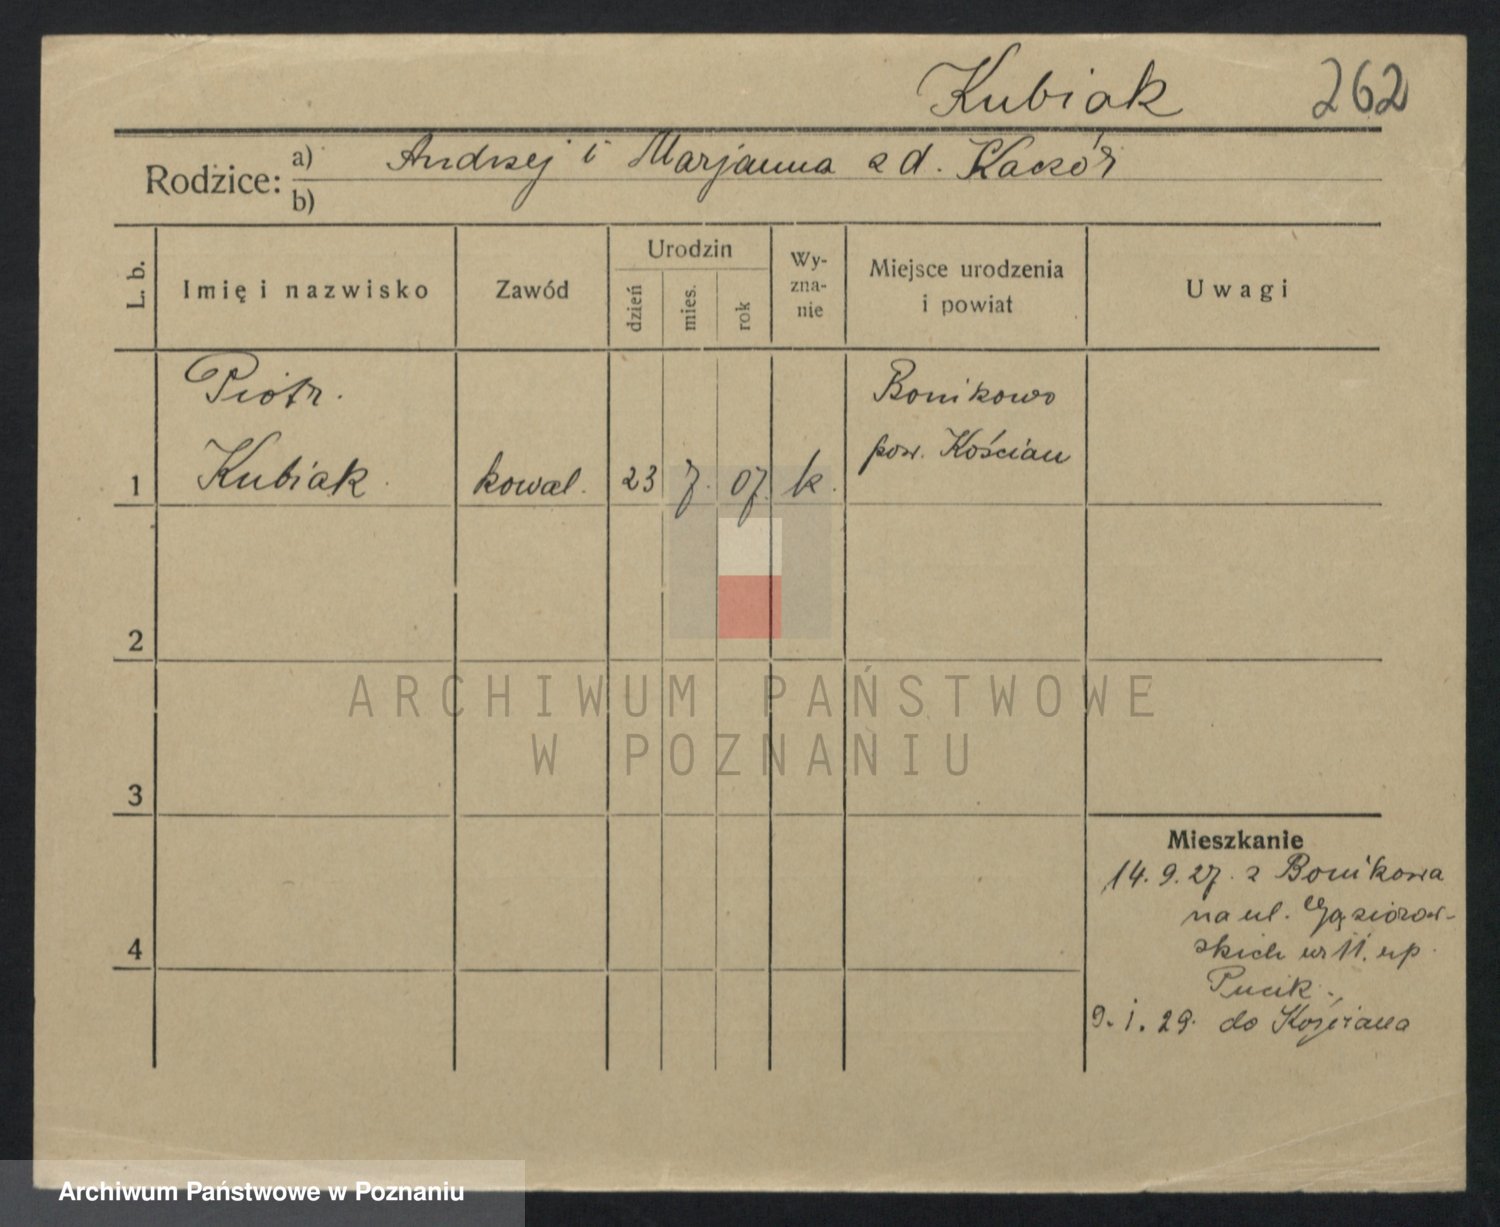 Kubiak 262
Rodzice: a) Andrzej i Marjanna z d. Kaczór
b)
L. b. Imię i nazwisko Zawód Urodzin dzień mies. rok Wy-zna-nie Miejsce urodzenia i powiat Uwagi
Piotr. Bonikowo
pow. Kościan
1 Kubiak. kowal. 23 7. 07. k.
2
3
4
Mieszkanie
14. 9. 27. z Bonikowa
na ul. Gąsiorow-
skich nr 11. np.
Pucik.
9. 1. 29. do Kościana
ARCHIWUM PAŃSTWOWE
W POZNANIU
Archiwum Państwowe w Poznaniu